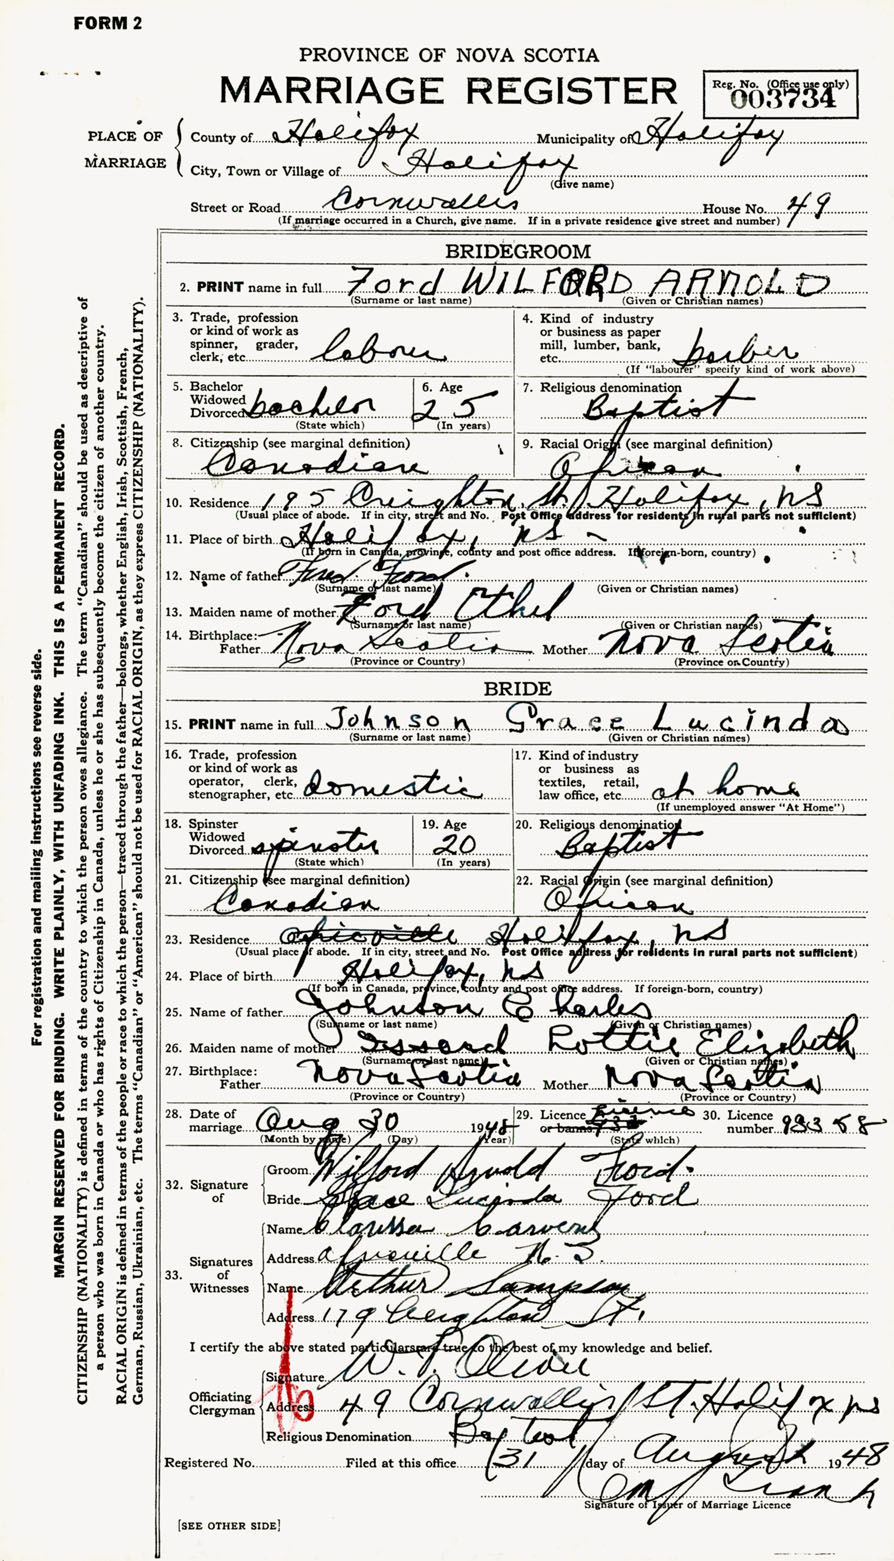 FORM 2
PROVINCE OF NOVA SCOTIA
MARRIAGE REGISTER
Reg. No. (Office use only)
003734
PLACE OF MARRIAGE
County of Halifax Municipality of Halifax
City, Town or Village of Halifax
(Give name)
Street or Road Cornwallis House No. 49
(If marriage occurred in a Church, give name. If in a private residence give street and number)
BRIDEGROOM
2. PRINT name in full Ford WILFORD ARNOLD
(Surname or last name) (Given or Christian names)
3. Trade, profession or kind of work as spinner, grader, clerk, etc. labour
4. Kind of industry or business as paper mill, lumber, bank, etc. barber
(If "labourer" specify kind of work above)
5. Bachelor Widowed Divorced bachelor
(State which)
6. Age 25
(In years)
7. Religious denomination Baptist
8. Citizenship (see marginal definition) Canadian
9. Racial Origin (see marginal definition) African
10. Residence 195 Creighton St. Halifax, NS
(Usual place of abode. If in city, street and No. Post Office address for residents in rural parts not sufficient)
11. Place of birth Halifax, NS
(If born in Canada, province, county and post office address. If foreign-born, country)
12. Name of father Fred Ford.
(Surname or last name) (Given or Christian names)
13. Maiden name of mother Ford Ethel
(Surname or last name) (Given or Christian names)
14. Birthplace: Father Nova Scotia Mother Nova Scotia
(Province or Country) (Province or Country)
BRIDE
15. PRINT name in full Johnson Grace Lucinda
(Surname or last name) (Given or Christian names)
16. Trade, profession or kind of work as operator, clerk, stenographer, etc. domestic
17. Kind of industry or business as textiles, retail, law office, etc. at home
(If unemployed answer "At Home")
18. Spinster Widowed Divorced spinster
(State which)
19. Age 20
(In years)
20. Religious denomination Baptist
21. Citizenship (see marginal definition) Canadian
22. Racial Origin (see marginal definition) African
23. Residence Africville Halifax, NS
(Usual place of abode. If in city, street and No. Post Office address for residents in rural parts not sufficient)
24. Place of birth Halifax, NS
(If born in Canada, province, county and post office address. If foreign-born, country)
25. Name of father Johnson Charles
(Surname or last name) (Given or Christian names)
26. Maiden name of mother Lottie Elizabeth
(Surname or last name) (Given or Christian names)
27. Birthplace: Father Nova Scotia Mother Nova Scotia
(Province or Country) (Province or Country)
28. Date of marriage Aug 30 1948
(Month by name) (Day) (Year)
29. Licence or banns Licence
(State which)
30. Licence number
32. Signature of
Groom Wilford Arnold Ford.
Bride Grace Lucinda Ford
33. Signatures of Witnesses
Name Clarissa
Address Africville N.S.
Name Arthur Sampson
Address 179 Creighton St.
I certify the above stated particulars are true to the best of my knowledge and belief.
Officiating Clergyman
Signature W. P. Oliver
Address 49 Cornwallis St. Halifax NS
Religious Denomination Baptist
Registered No. Filed at this office 31 day of August 1948
Signature of Issuer of Marriage Licence
[SEE OTHER SIDE]
For registration and mailing instructions see reverse side.
MARGIN RESERVED FOR BINDING. WRITE PLAINLY, WITH UNFADING INK. THIS IS A PERMANENT RECORD.
CITIZENSHIP (NATIONALITY) is defined in terms of the country to which the person owes allegiance. The term "Canadian" should be used as descriptive of
a person who was born in Canada or who has rights of Citizenship in Canada, unless he or she has subsequently become the citizen of another country.
RACIAL ORIGIN is defined in terms of the people or race to which the person—traced through the father—belongs, whether English, Irish, Scottish, French,
German, Russian, Ukrainian, etc. The terms "Canadian" or "American" should not be used for RACIAL ORIGIN, as they express CITIZENSHIP (NATIONALITY).